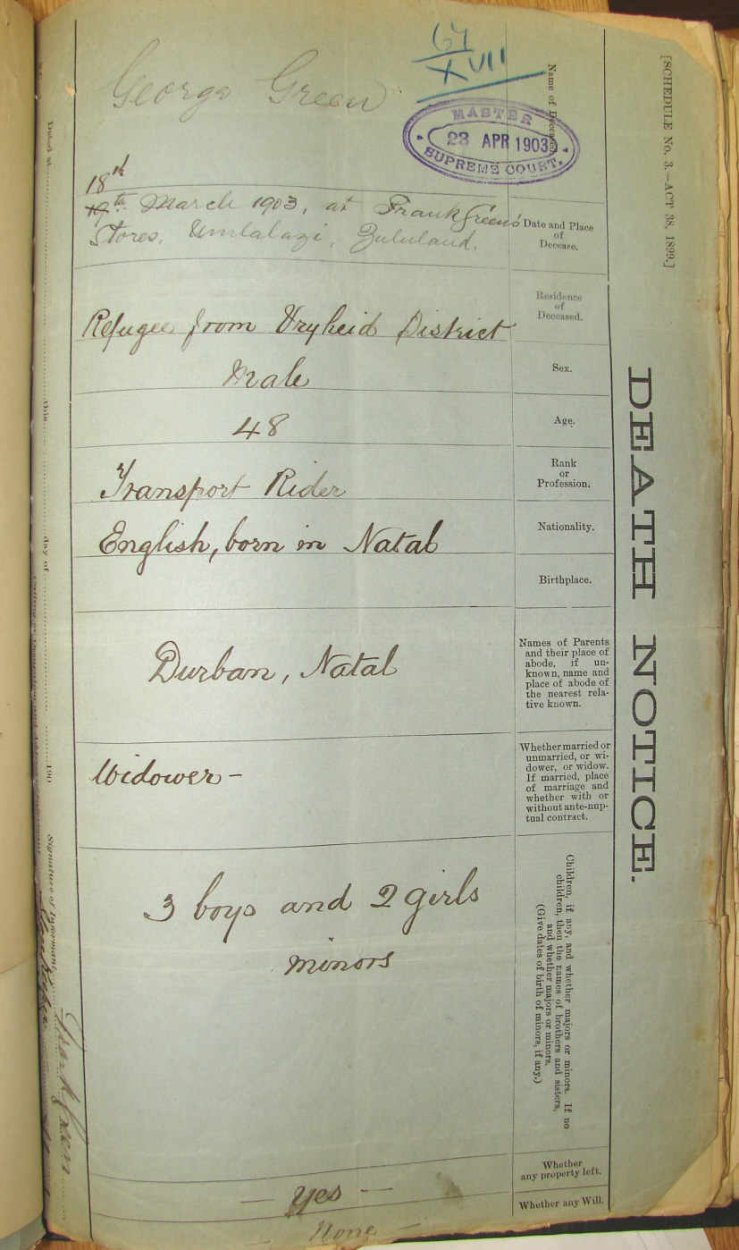 [SCHEDULE No. 3.—ACT 38, 1899.]
DEATH NOTICE.
67
XVII
MASTER
23 APR 1903
SUPREME COURT.
Name of Deceased.
George Green
Date and Place
of
Decease.
18th
19th March 1903, at Frank Green's
Stores, Umlalazi, Zululand.
Residence
of
Deceased.
Refugee from Vryheid District
Sex.
Male
Age.
48
Rank
or
Profession.
Transport Rider
Nationality.
English, born in Natal
Birthplace.
Names of Parents
and their place of
abode, if un-
known, name and
place of abode of
the nearest rela-
tive known.
Durban, Natal
Whether married or
unmarried, or wi-
dower, or widow.
If married, place
of marriage and
whether with or
without ante-nup-
tual contract.
Widower –
Children, if any, and whether majors or minors. If no
children, then the names of brothers and sisters,
and whether majors or minors.
(Give dates of birth of minors, if any.)
3 boys and 2 girls
minors
Whether
any property left.
– Yes –
Whether any Will.
None –
Dated at
this
day of
190
Signature of Informant,
Frank Green